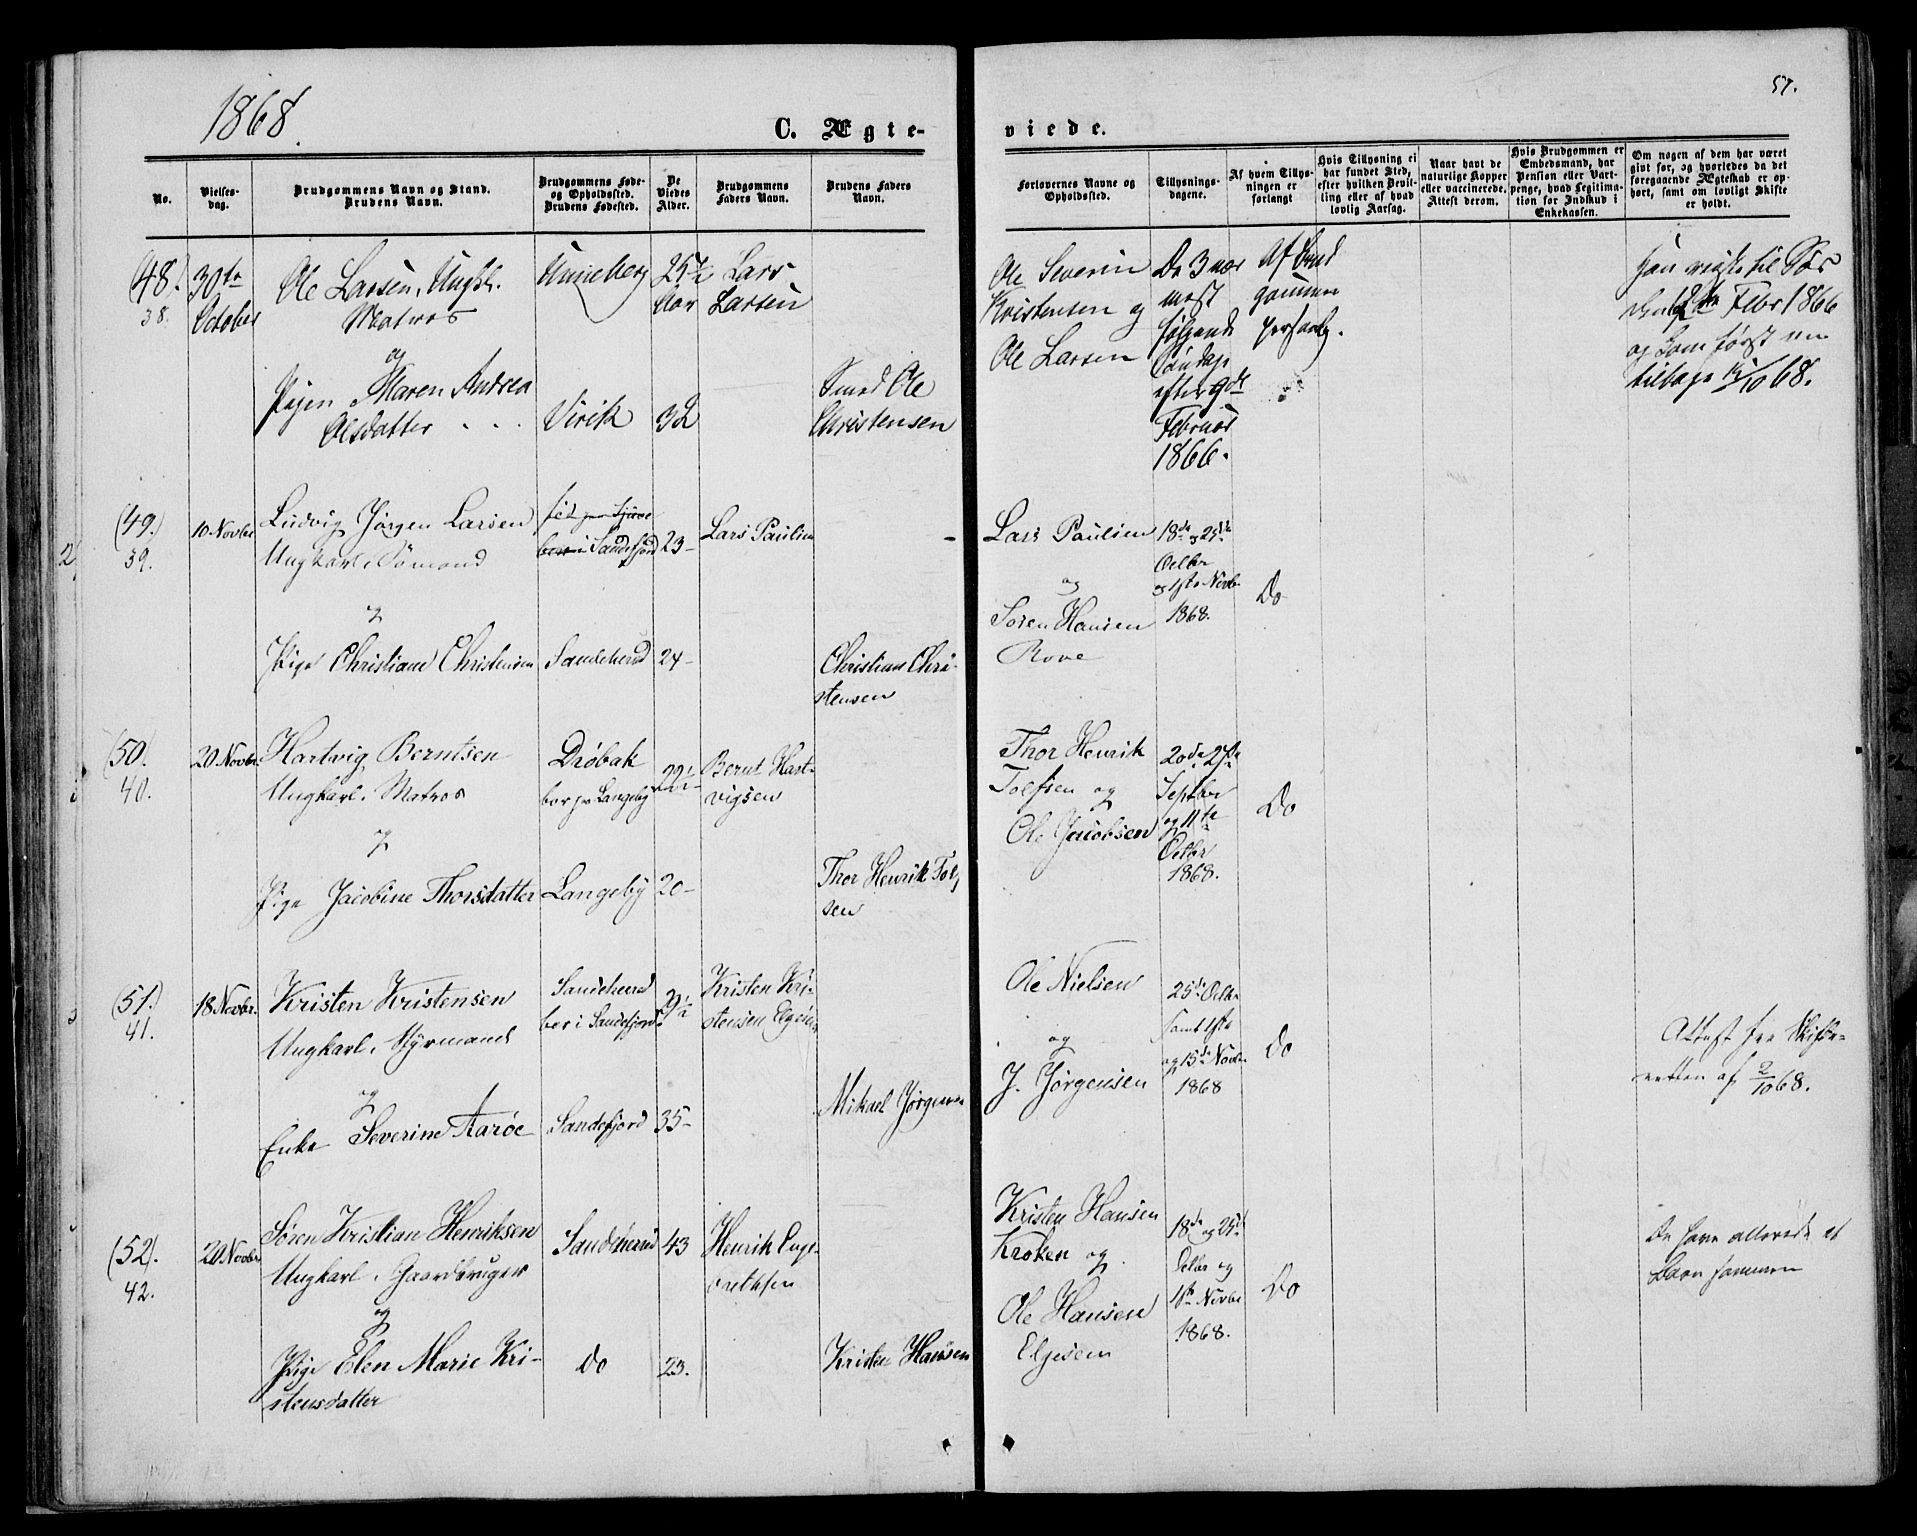 1868.
57.
C. Ægte-
viede.
No.
Vielses-
dag.
Brudgommens Navn og Stand.
Brudens Navn.
Brudgommens Føde-
og Opholdssted.
Brudens Fødested.
De
Viedes
Alder.
Brudgommens
Faders Navn.
Brudens Faders
Navn.
Forlovernes Navne og
Opholdssted.
Tillysnings-
dagene.
Af hvem Tillys-
ningen er
forlangt
Hvis Tillysning ei
har fundet Sted,
efter hvilken Bevil-
ling eller af hvad
lovlig Aarsag.
Naar havt de
naturlige Kopper
eller vaccinerede.
Attest derom.
Hvis Brudgommen er
Embedsmand, har
Pension eller Vart-
penge, hvad Legitima-
tion for Indskud i
Enkekassen.
Om nogen af dem har været
givt før, og hvorledes da det
foregaaende Ægteskab er op-
hørt, samt om lovligt Skifte
er holdt.
(48.)
38.
30te
October
Ole Larsen, Ungkl.
Matros
og
Pigen Maren Andrea
Olsdatter
Unneberg
Virik
25 1/2
Aar
32
Lars
Larsen
Smed Ole
Christensen
Ole Severin
Kristensen og
Ole Larsen
De 3 nær
mest
følgende
Søndage
efter 9de
Februar
1866.
Af Brud
gommen
personlig.
Han reiste til Søs
den 12te Febr 1866
og kom først nu
tilbage 68.
(49.)
39.
10 Novbr
Ludvig Jørgen Larsen
Ungkarl, Sømand
og
Pige Christiane Christensen
fød
i Sandefjord
Sandeherred
23
24
Lars Paulsen
Christian Chri-
stensen
Lars Paulsen
og
Søren Hansen
Rove
18de og 25de
Octbr
og 1ste Novbr
1868.
Do
(50.)
40.
20 Novbr.
Hartvig Berntsen
Ungkarl, Matros
og
Pige Jacobine Thorsdatter
Drøbak
bor på Langeby
Langeby
22 1/2
20
Bernt Hart-
vigsen
Thor Henrik Tol-
sen
Thor Henrik
Tolfsen og
Ole Jacobsen
20de 27de
Septbr
og 11te
Octbr
1868.
Do
(51.)
41.
18 Novbr.
Kristen Kristensen
Ungkarl, Styrmand
og
Enke Severine Aarøe
Sandeherred
bor i Sandefjord
Sandefjord
29 1/2
35
Kristen Kri-
stensen
Mikael Jørgensen
Ole Nielsen
og
J. Jørgensen
25de Octbr
samt 1ste
og 15de Novbr
1868
Do
Attest fra Skifte-
retten af 2/10 68.
(52).
42.
20 Novbr
Søren Kristian Henriksen
Ungkarl, Gaardbruger
og
Pige Elen Marie Kri-
stensdatter
Sandeherred
Do
43
23.
Henrik Enge-
brethsen
Kristen Hansen
Kristen Hansen
Kroken og
Ole Hansen
Elgesem
18de og 25de
Octbr og
1ste Novbr
1868.
Do
De have allerede et
Barn sammen